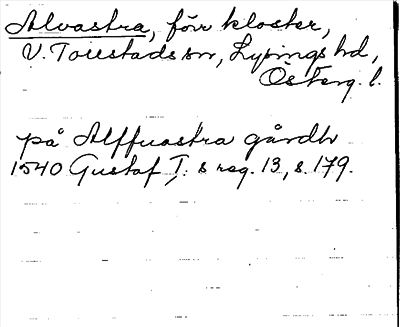 Alvastra, förr kloster,
V. Tollstads sn, Lysings hd,
Österg. l.
på Alffuastra gårdh
1540 Gustaf I:s reg. 13, s. 179.